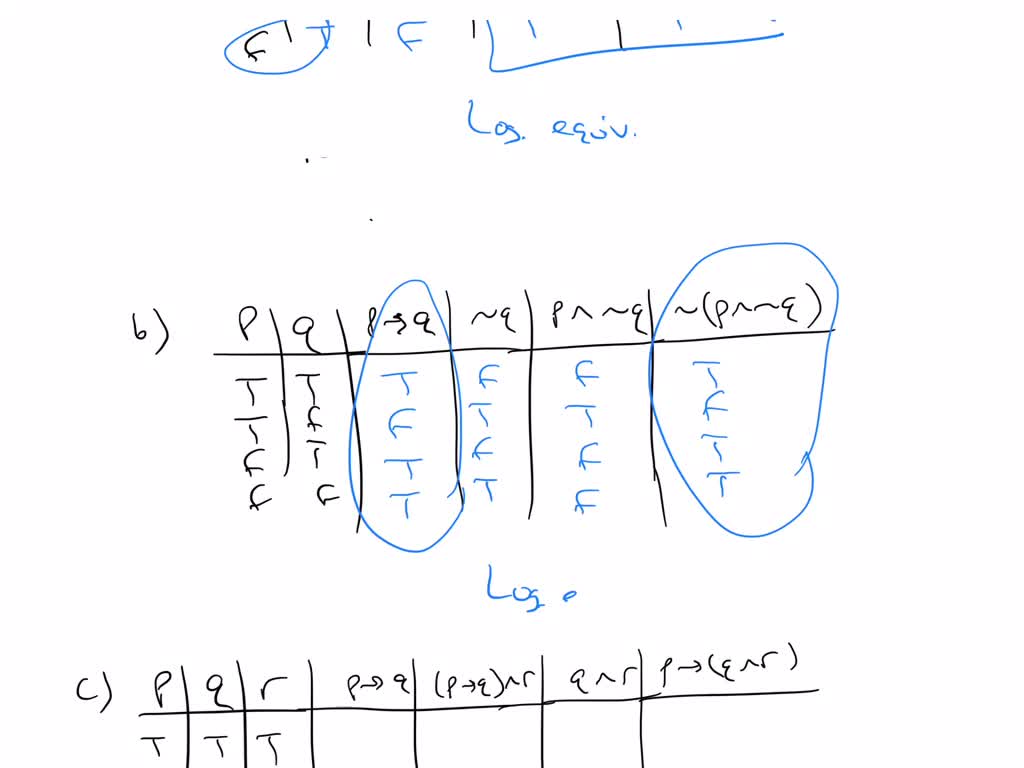 F T F
Log. equiv.
b) p q p→q ~q p∧~q ~(p∧~q)
T T T F F T
T F F T T F
F T T F F T
F F T T F T
Log e
c) p q r p→q (p→q)∧r q∧r p→(q∧r)
T T T